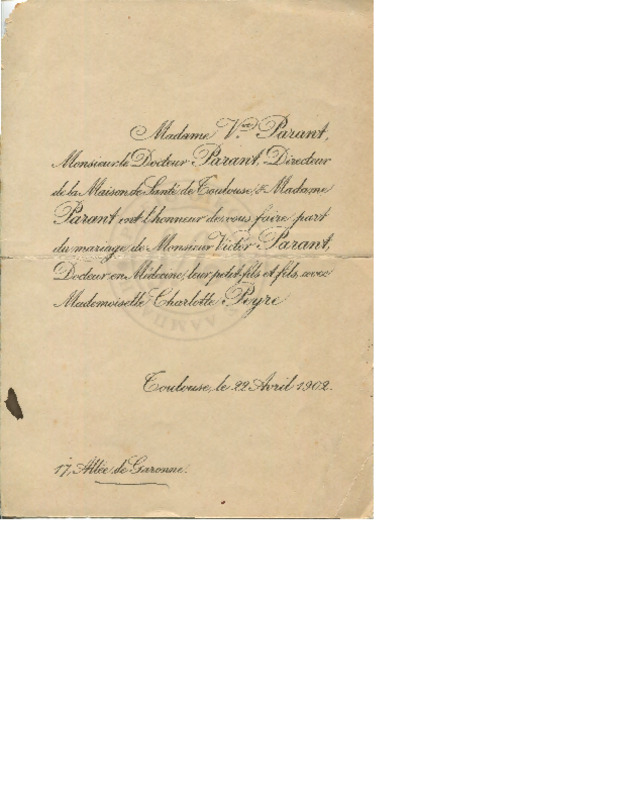 Madame Vve Parant,
Monsieur le Docteur Parant, Directeur
de la Maison de Santé de Toulouse & Madame
Parant ont l'honneur de vous faire part
du mariage de Monsieur Victor Parant,
Docteur en Médecine, leur petit-fils et fils, avec
Mademoiselle Charlotte Peyre
Toulouse, le 22 Avril 1902.
17, Allée de Garonne.